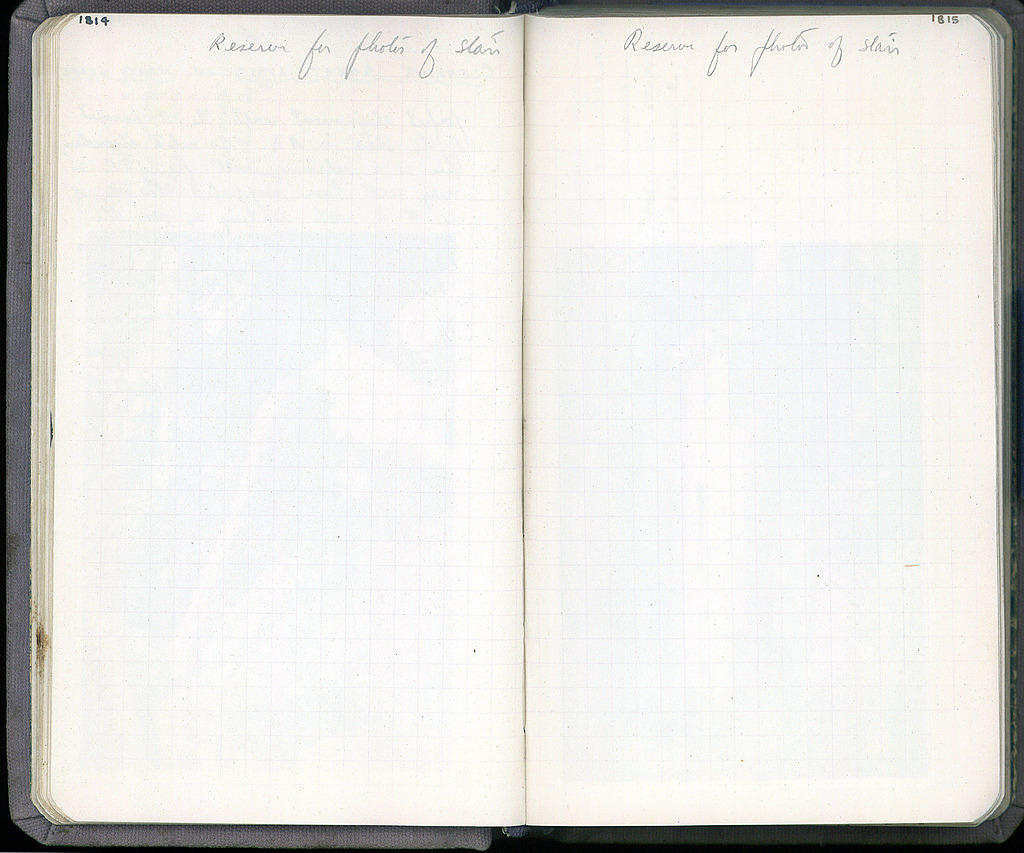 1814
Reserve for photos of stair
1815
Reserve for photos of stair